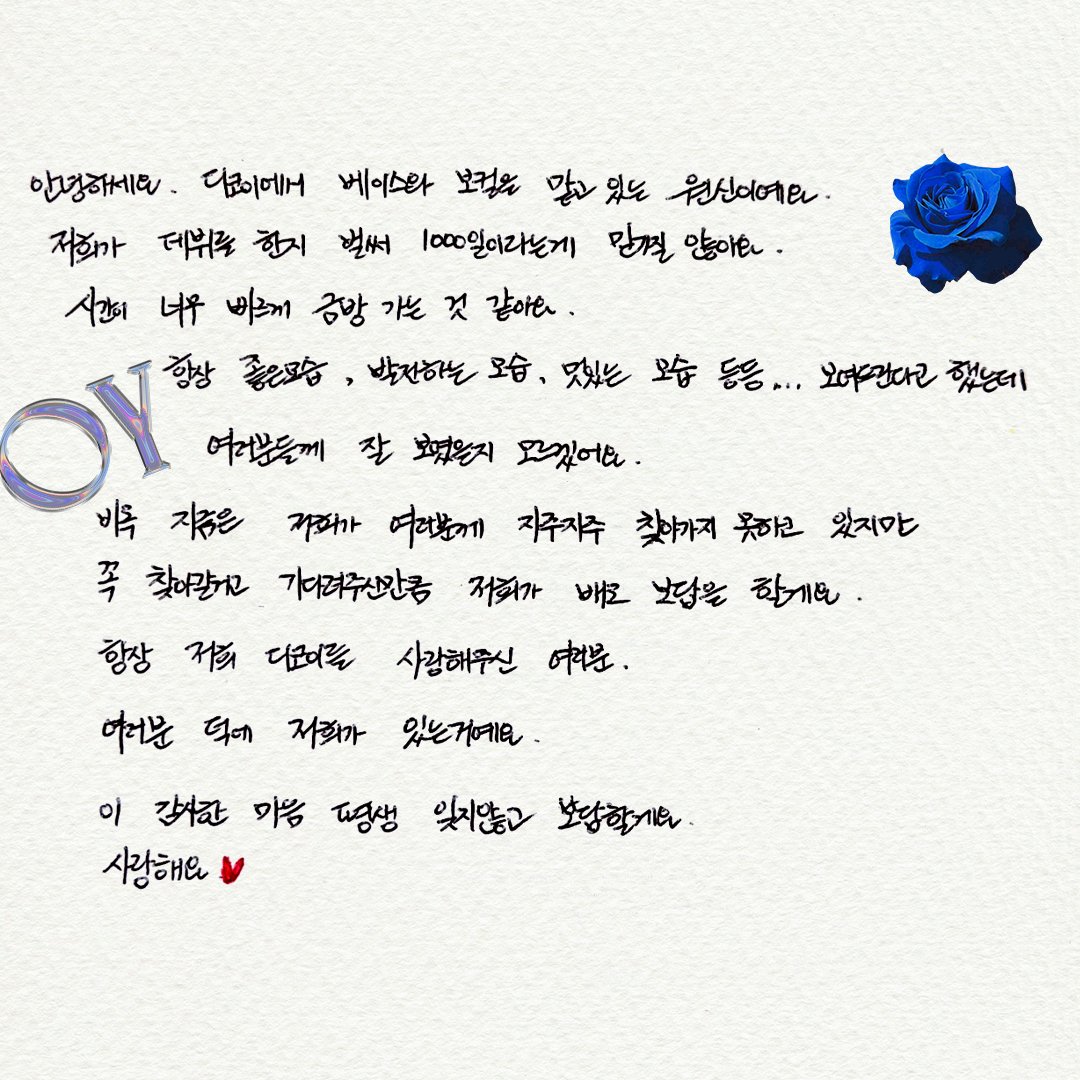 안녕하세요. 디코이에서 베이스와 보컬을 맡고 있는 원신이예요.
저희가 데뷔를 한지 벌써 1000일이라는게 믿기질 않아요.
시간이 너무 빠르게 금방 가는 것 같아요.
항상 좋은모습, 발전하는 모습, 멋있는 모습 등등... 보여드린다고 했는데
OY
여러분들께 잘 보였을지 모르겠어요.
비록 지금은 저희가 여러분께 자주자주 찾아가지 못하고 있지만
꼭 찾아갈거고 기다려주신만큼 저희가 배로 보답을 할게요.
항상 저희 디코이를 사랑해주신 여러분.
여러분 덕에 저희가 있는거예요.
이 감사한 마음 평생 잊지않고 보답할게요.
사랑해요